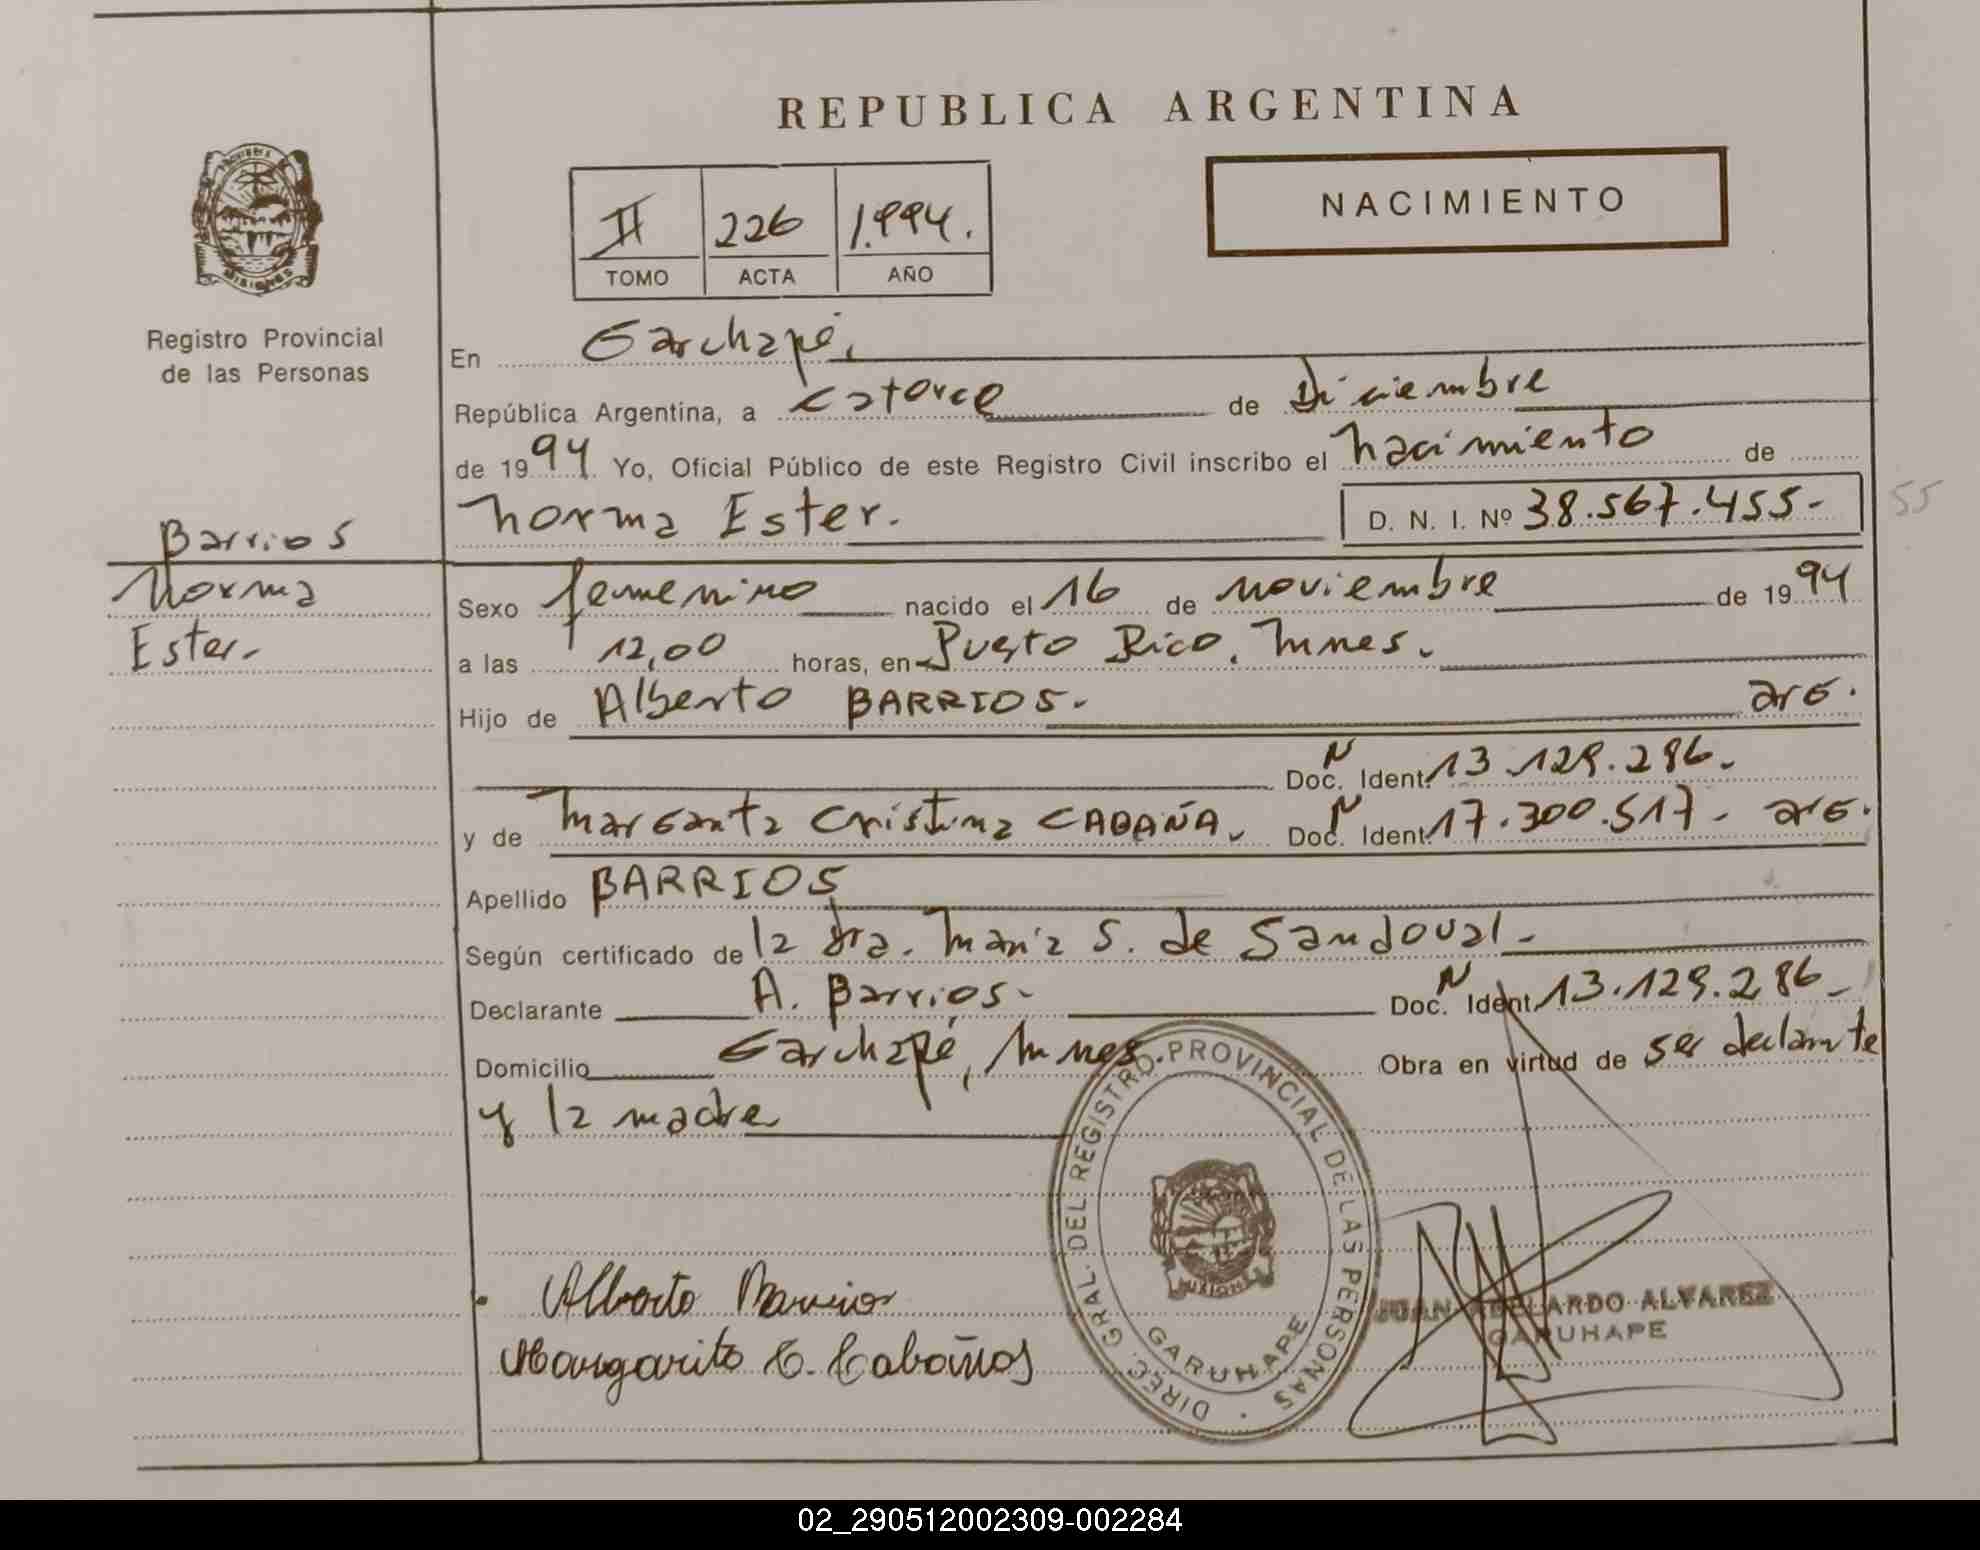 REPUBLICA ARGENTINA
NACIMIENTO
II 226 1.994.
TOMO ACTA AÑO
MISIONES
Registro Provincial
de las Personas
En Garuhapé,
República Argentina, a catorce de Diciembre
de 1994 Yo, Oficial Público de este Registro Civil inscribo el nacimiento de
Norma Ester. D. N. I. Nº 38.567.455.-
55
Barrios
Norma
Ester.-
Sexo femenino nacido el 16 de noviembre de 1994
a las 12,00 horas, en Puerto Rico, Mnes.
Hijo de Alberto BARRIOS.- arg.
N
Doc. Ident. 13.129.286.-
N
y de Margarita Cristina CABAÑA. Doc. Ident. 17.300.517- arg.
Apellido BARRIOS
Según certificado de la dra. María S. de Sandoval.-
N
Declarante A. Barrios.- Doc. Ident. 13.129.286.-
Domicilio Garuhapé, Mnes. Obra en virtud de ser declarante
y la madre
DIREC. GRAL. DEL REGISTRO PROVINCIAL DE LAS PERSONAS
MISIONES
GARUHAPE
Alberto Barrios
Margarita C. Cabaños
JUAN ABELARDO ALVAREZ
GARUHAPE
02_290512002309-002284